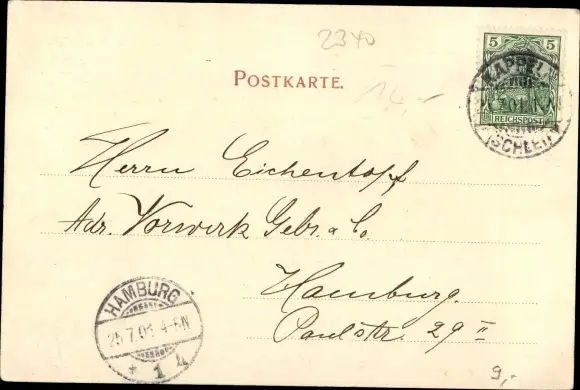 2340
5 5
REICHSPOST
KAPPELN
(SCHLEI)
POSTKARTE.
14,-
Herrn Eichentopf
Adr. Vorwerk Gebr. & Co.
Hamburg.
Paulstr. 29 II
HAMBURG
25.7.01. 4-5N
* 1 k
9,-